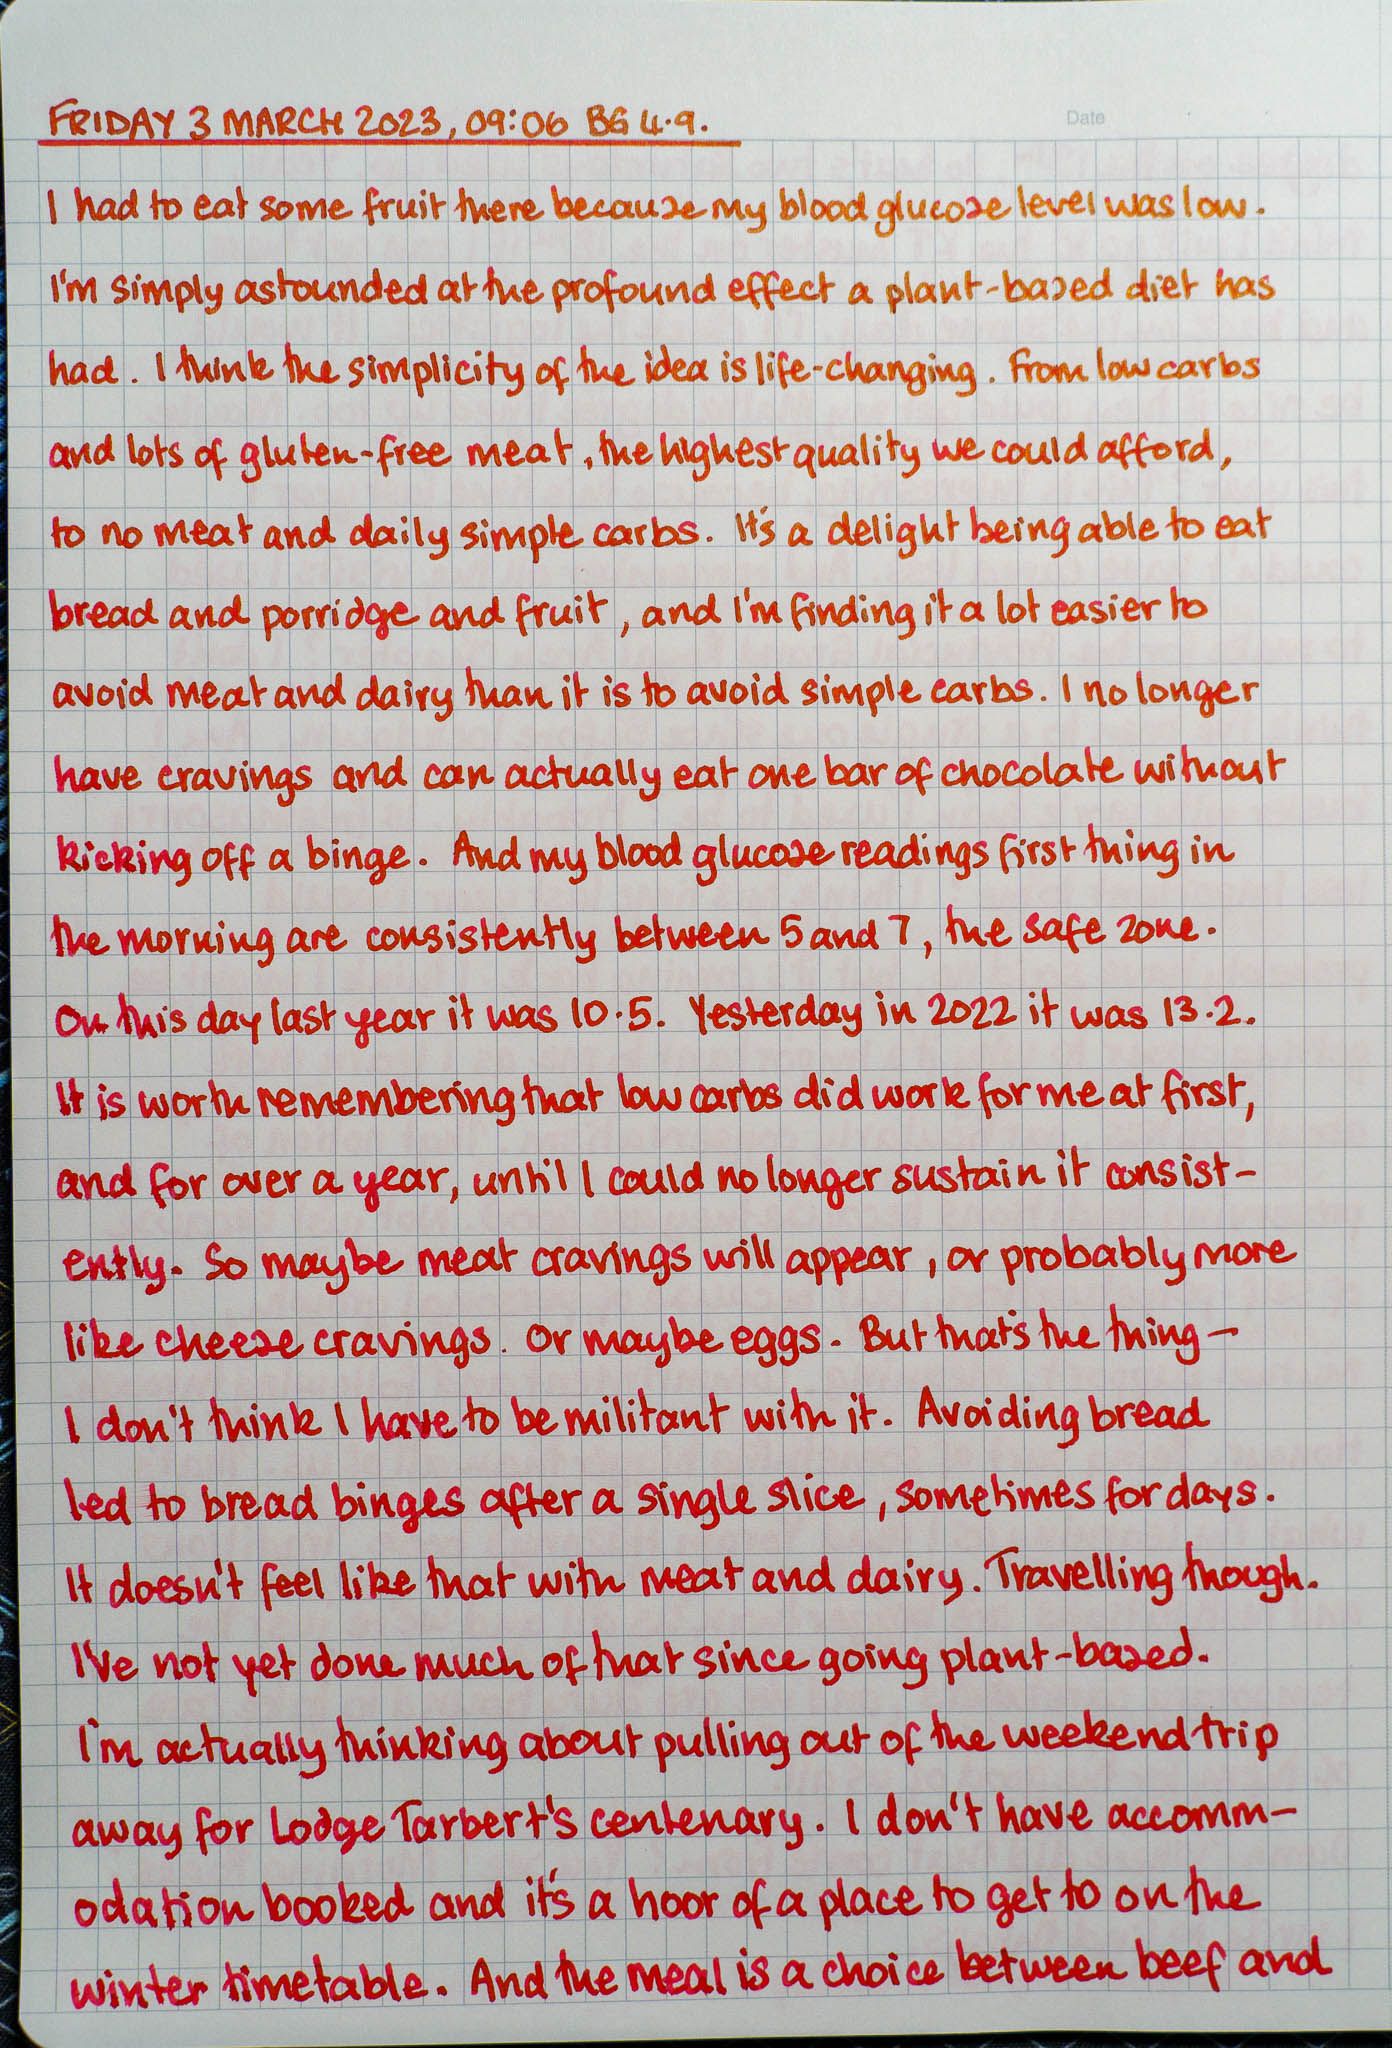 FRIDAY 3 MARCH 2023, 09:06 BG 4.9.
Date
I had to eat some fruit there because my blood glucose level was low.
I'm simply astounded at the profound effect a plant-based diet has
had. I think the simplicity of the idea is life-changing. From low carbs
and lots of gluten-free meat, the highest quality we could afford,
to no meat and daily simple carbs. It's a delight being able to eat
bread and porridge and fruit, and I'm finding it a lot easier to
avoid meat and dairy than it is to avoid simple carbs. I no longer
have cravings and can actually eat one bar of chocolate without
kicking off a binge. And my blood glucose readings first thing in
the morning are consistently between 5 and 7, the safe zone.
On this day last year it was 10.5. Yesterday in 2022 it was 13.2.
It is worth remembering that low carbs did work for me at first,
and for over a year, until I could no longer sustain it consist-
ently. So maybe meat cravings will appear, or probably more
like cheese cravings. Or maybe eggs. But that's the thing –
I don't think I have to be militant with it. Avoiding bread
led to bread binges after a single slice, sometimes for days.
It doesn't feel like that with meat and dairy. Travelling though.
I've not yet done much of that since going plant-based.
I'm actually thinking about pulling out of the weekend trip
away for Lodge Tarbert's centenary. I don't have accomm-
odation booked and it's a hoor of a place to get to on the
winter timetable. And the meal is a choice between beef and